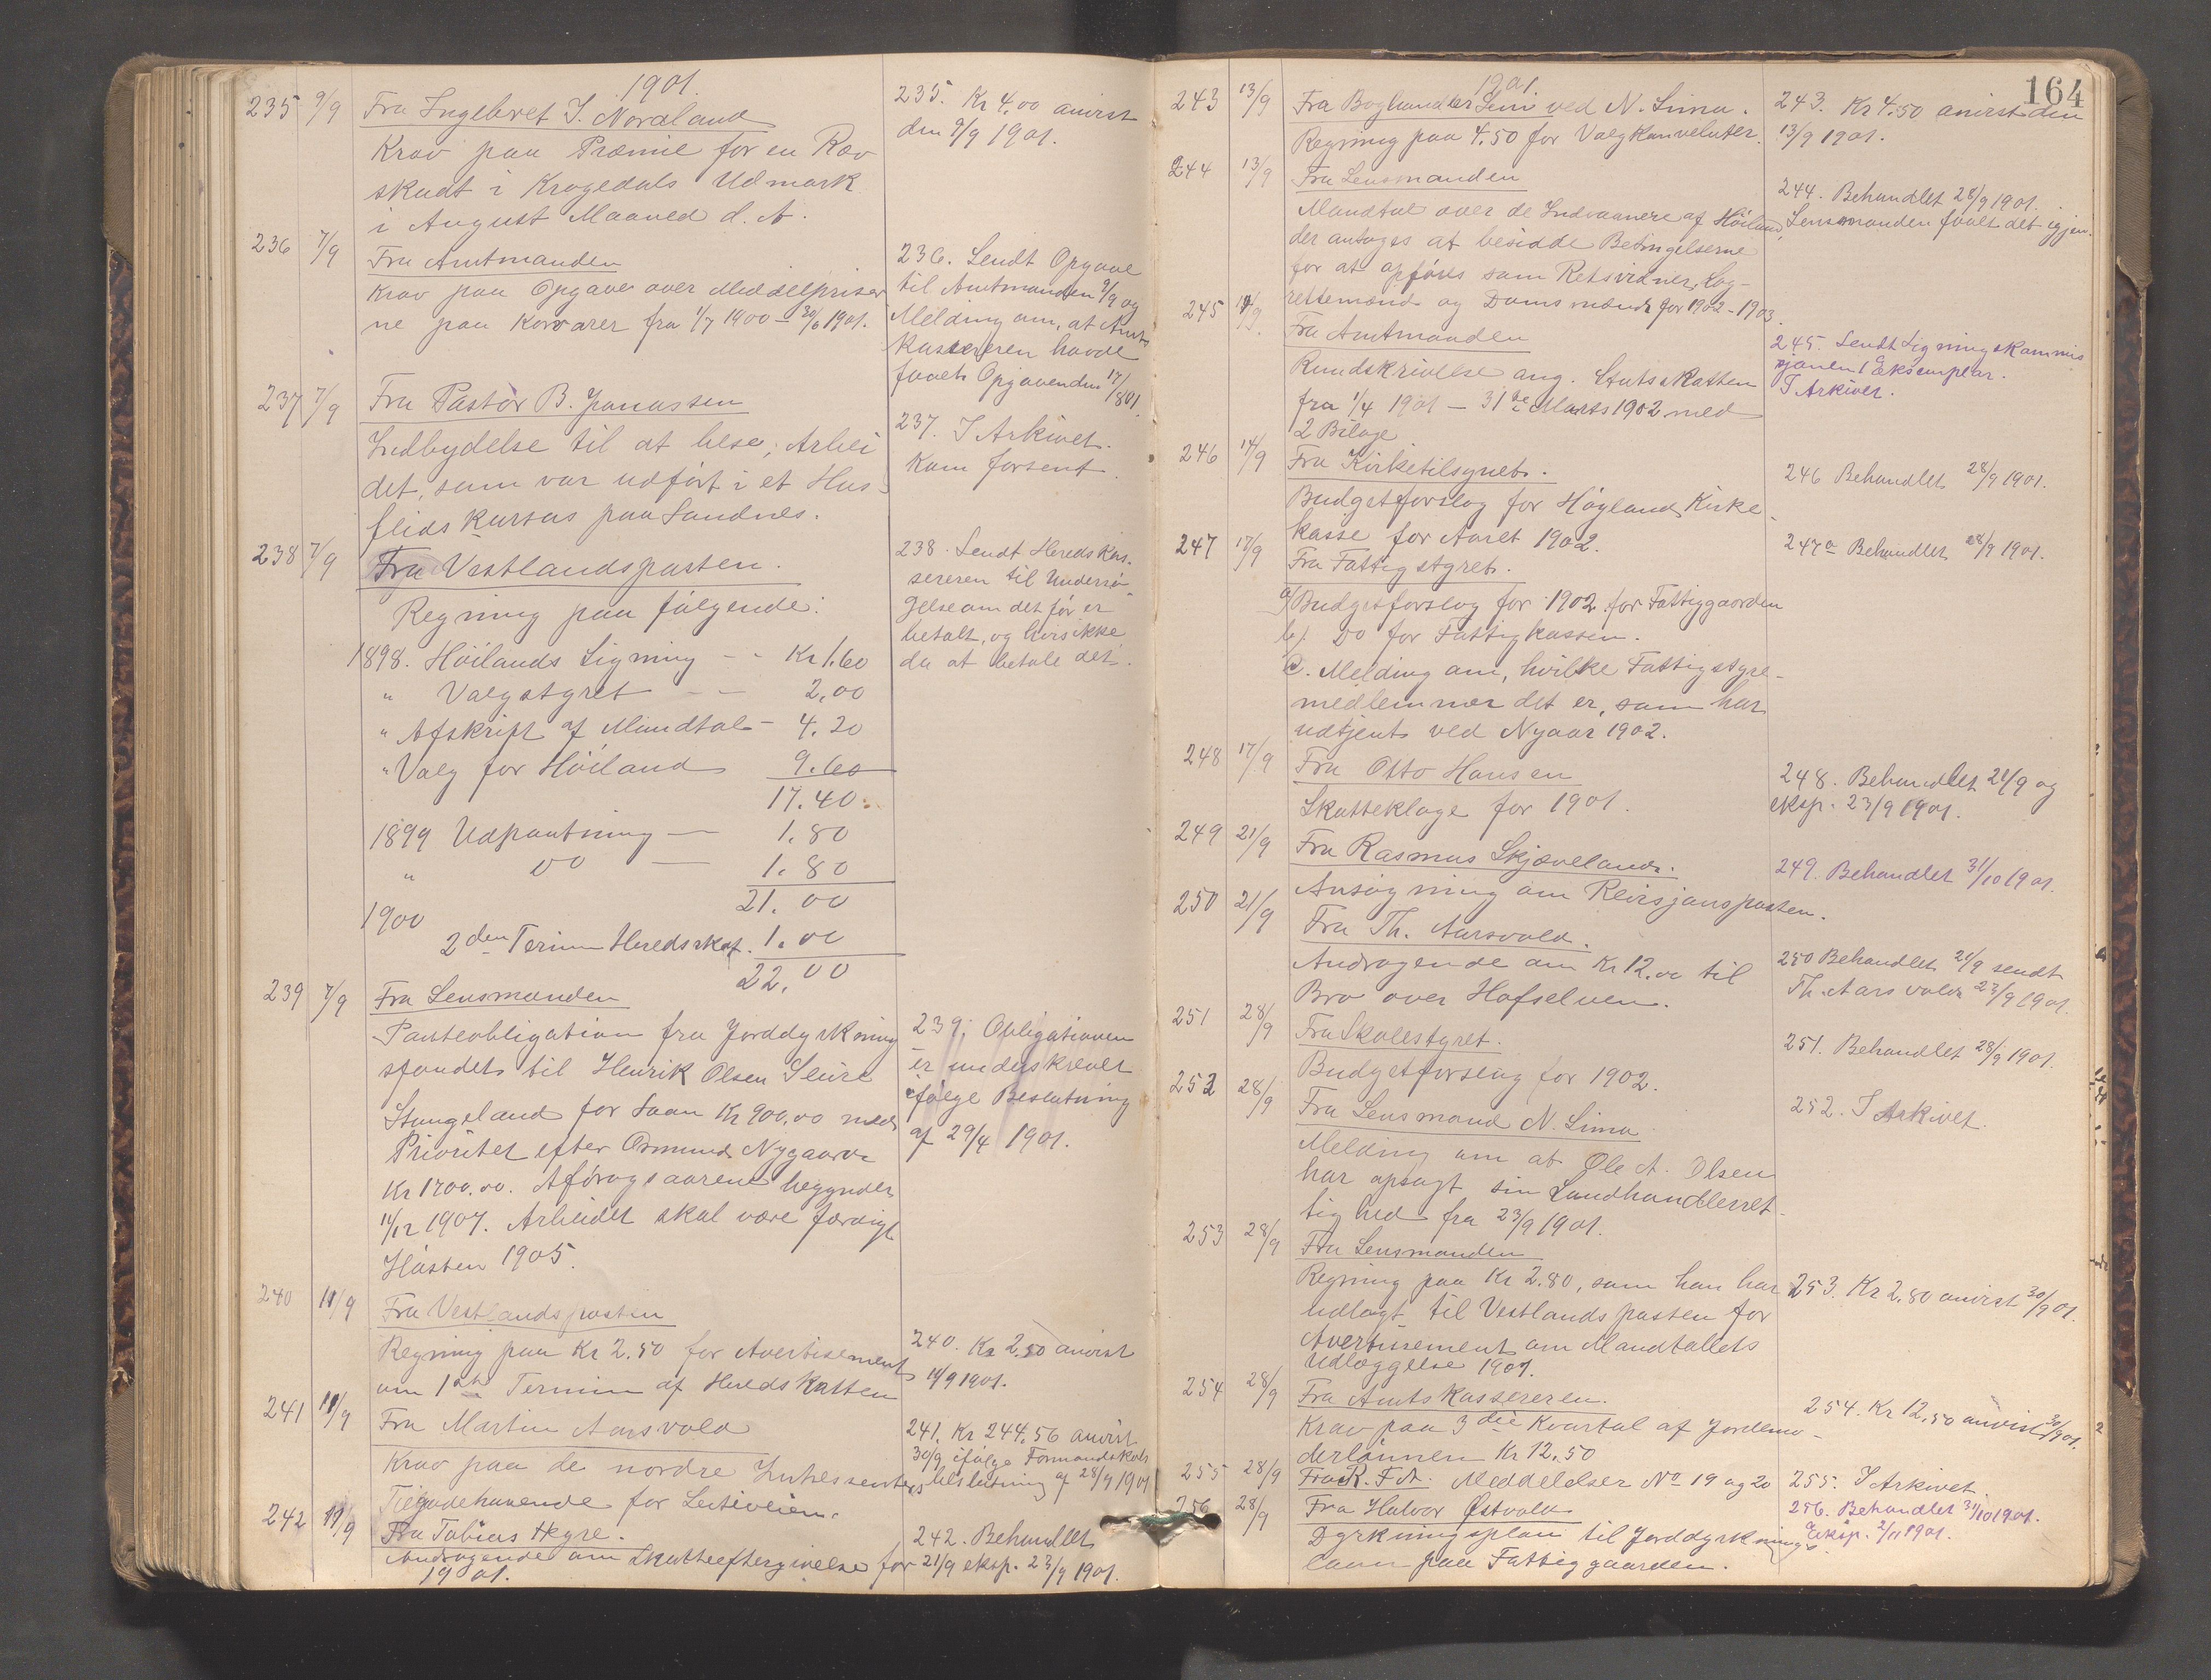 1901.
235 9/9 Fra Ingebret I. Nordland
Krav paa Præmie for en Ræv
skudt i Kragedals Udmark
i August Maaned d. A.
235. Kr 4,00 anvist
den 9/9 1901.
236 7/9 Fra Amtmanden
Krav paa Opgave over Middelpriser
ne paa Kornvarer fra 1/7 1900 - 30/6 1901.
236. Sendt Opgave
til Amtmanden 9/9 og
Melding om, at Amts
kassereren havde
faaet Opgaven den 17/8 01.
237 7/9 Fra Pastor B. Jonassen
Indbydelse til at bese, Arbei
det, som var udført i et Hus-
flids Kursus paa Sandnes.
237. I Arkivet.
Kom forsent.
238 7/9 Fra Vestlandsposten.
Regning paa følgende:
1898. Höilands Ligning - - Kr 1.60
" Valgstyret - - 2,00
" Afskrift af Mandtal - 4.20
" Valg for Höiland 9.60
17.40.
1899 Udpantning - 1.80
" Do - 1.80
21.00
1900
2den Termin Heredsskat. 1.00
22.00
238. Sendt Heredskas-
sereren til Undersø-
gelse om det før er
betalt, og hvis ikke
da at betale det.
239 7/9 Fra Lensmanden
Panteobligation fra Jorddyrkning
sfondet til Henrik Olsen
Stangeland for Laan Kr 900,00 med
Prioritet efter Osmund Nygaard
Kr 1700.00. Afdragsaarene begynder
11/12 1907. Arbeidet skal være færdigt
Høsten 1905.
239. Obligationen
er underskrevet
ifølge Beslutning
af 29/4 1901.
240 11/9 Fra Vestlandsposten
Regning paa Kr 2.50 for Avertisement
om 1ste Termin af Heredskatten
240. Kr 2.50 anvist
11/9 1901.
241 11/9 Fra Martin Aarsvold
Krav paa de nordre Interessenters
Tilgodehavende for
241. Kr 244,56 anvist
30/9 ifølge Formandskab
sbeslutning af 28/9 1901
242 11/9 Fra Tobias Hegre.
Andragende om Skatteeftergivelse for
1901.
242. Behandlet
21/9 eksp. 23/9 1901.
164
1901.
243 13/9 Fra Boghandler ved N. Lima.
Regning paa 4.50 for Valgkonveluter.
243. Kr 4.50 anvist den
13/9 1901.
244 13/9 Fra Lensmanden
Mandtal over de Indvaanere af Höiland,
der antages at besidde Betingelserne
for at opføres som Retsvidner, Lag-
rettemænd og Doms mænd for 1902 - 1903.
244. Behandlet 28/9 1901.
Lensmanden faaet det igjen.
245 14/9 Fra Amtmanden
Rundskrivelse ang. Statsskatten
fra 1/4 1901 - 31te Marts 1902 med
2 Bilage
245. Sendt Ligningskommis
sjonen 1 Eksemplar.
I Arkivet.
246 14/9 Fra Kirketilsynet.
Budgetforslag for Høyland Kirke-
kasse for Aaret 1902.
246 Behandlet 28/9 1901.
247 17/9 Fra Fattigstyret.
a) Budgetforslag for 1902 for Fattiggaarden
b). Do for Fattigkassen.
c. Melding om, hvilke Fattigstyre-
medlemmer det er, som har
udtjent ved Nyaar 1902.
247a Behandlet 28/9 1901.
248 17/9 Fra Otto Hansen
Skatteklage for 1901.
248. Behandlet 21/9 og
eksp. 23/9 1901.
249 21/9 Fra Rasmus Skjæveland.
Ansøgning om Revisjonsposten.
249. Behandlet 31/10 1901.
250 21/9 Fra Th. Aarsvold.
Andragende om Kr 12.00 til
Bro over Hofselven.
250 Behandlet 21/9 sendt
Th. Aarsvold 23/9 1901.
251 28/9 Fra Skolestyret.
Budgetforslag for 1902.
251. Behandlet 28/9 1901.
252 28/9 Fra Lensmand N. Lima
Melding om at Ole A. Olsen
har opsagt sin Landhandlerret-
tighed fra 23/9 1901.
252. I Arkivet.
253 28/9 Fra Lensmanden
Regning paa Kr 2.80, som han har
udlagt til Vestlandsposten for
Avertisement om Mandtallets
Udlæggelse 1901.
253. Kr 2,80 anvist 30/9 01.
254 28/9 Fra Amtskassereren.
Krav paa 3die Kvartal af Jordemo-
derlønnen Kr 12,50
254. Kr 12,50 anvist 30/9 01.
255 28/9 Fra R. F. A. Meddelelser No 19 og 20
255. I Arkivet.
256 28/9 Fra Halvor Østvold
Dyrkningsplan til Jorddyrknings
laan paa Fattiggaarden.
256. Behandlet 31/10 1901.
Eksp. 2/11 1901.